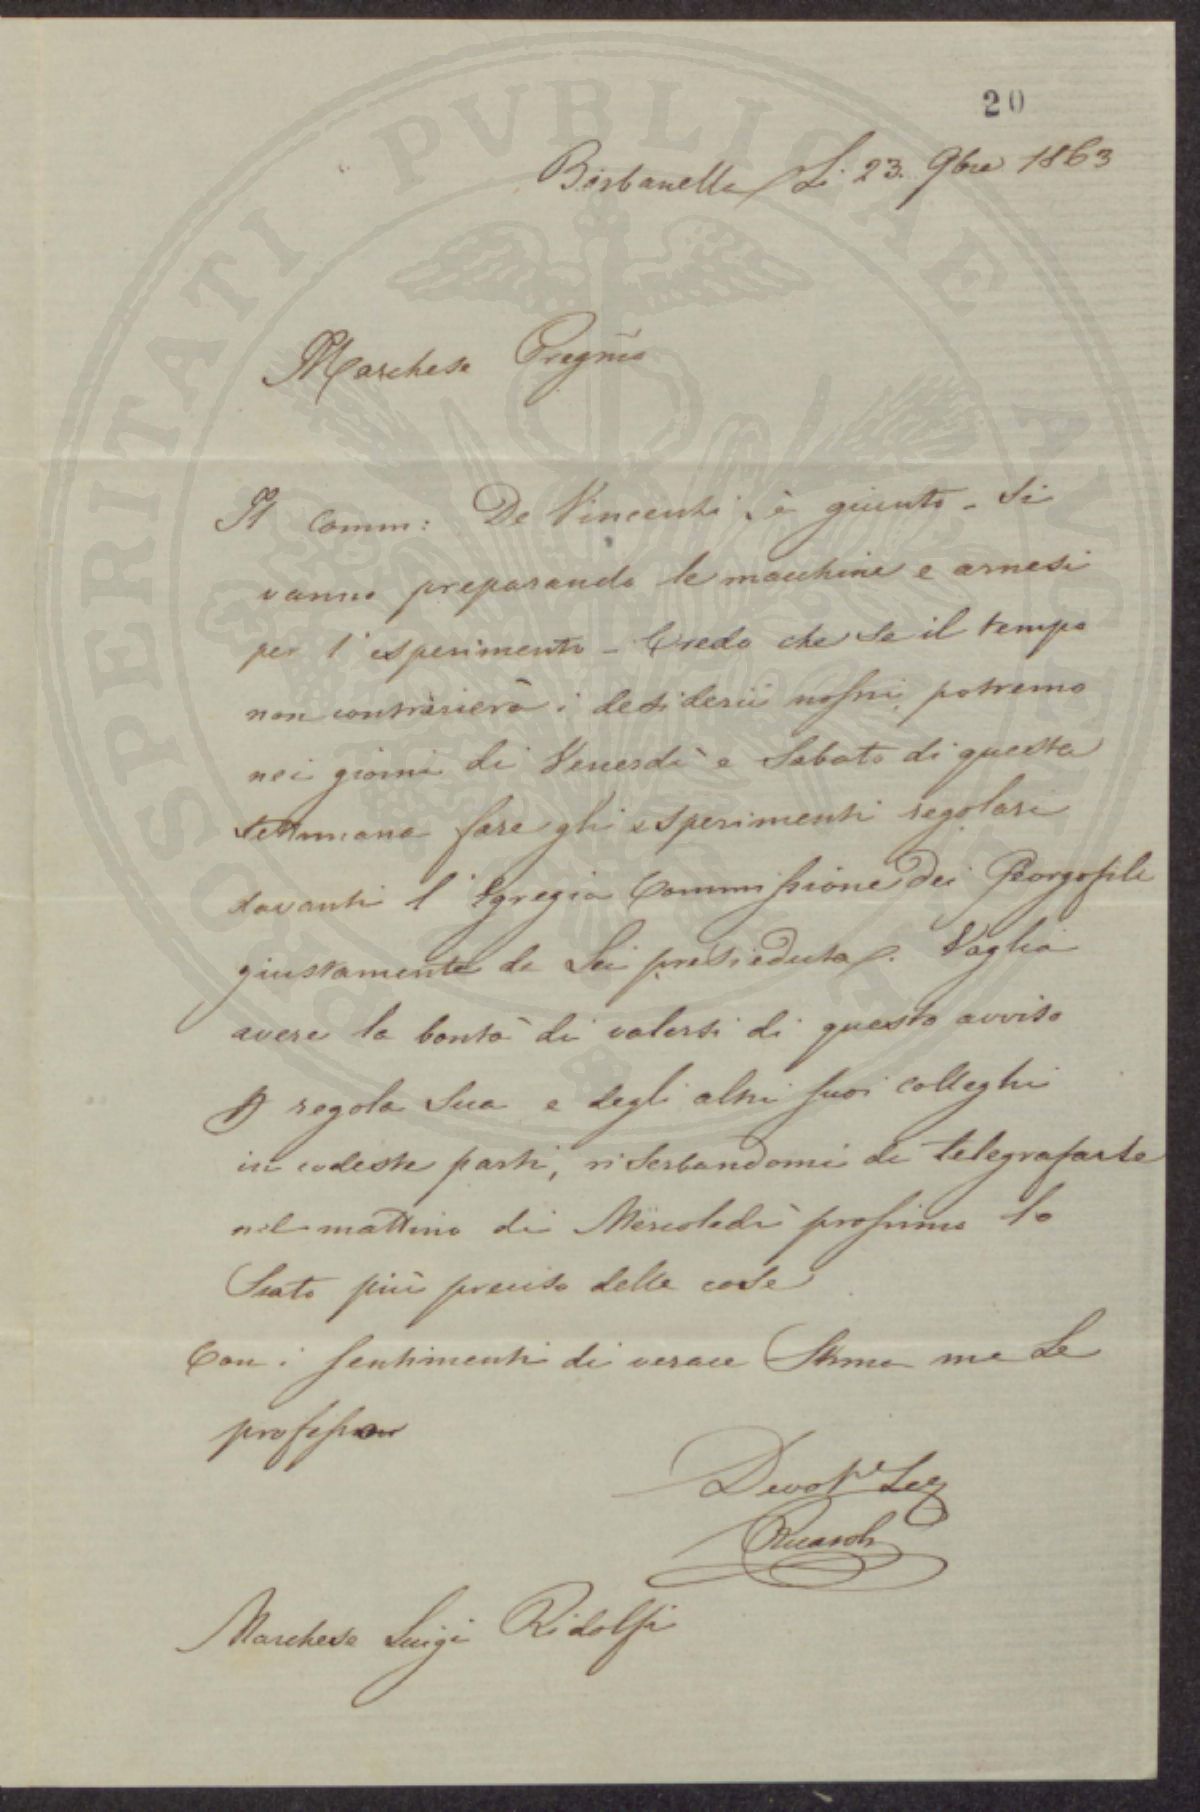 20
Barbanella Li 23. 9bre 1863
Marchese Pregmo
Il Comm: De Vincenti è giunto - Si
vanno preparando le macchine e arnesi
per l'esperimento - Credo che se il tempo
non contrarierà i desiderii nostri, potremo
nei giorni di Venerdì e Sabato di questa
settimana fare gli esperimenti regolari
davanti l'Egregia Commissione dei Georgofili
giustamente da Lei presieduta. Voglia
avere la bontà di valersi di questo avviso
A regola Sua e degli altri suoi colleghi
in codeste parti, riserbandomi di telegrafarle
nel mattino di Mercoledì prossimo lo
Stato più preciso delle cose
Con i sentimenti di verace Stima me Le
professo
Devotmo Suo
Ricasoli
Marchese Luigi Ridolfi
PROSPERITATI PVBLICAE AVGENDAE